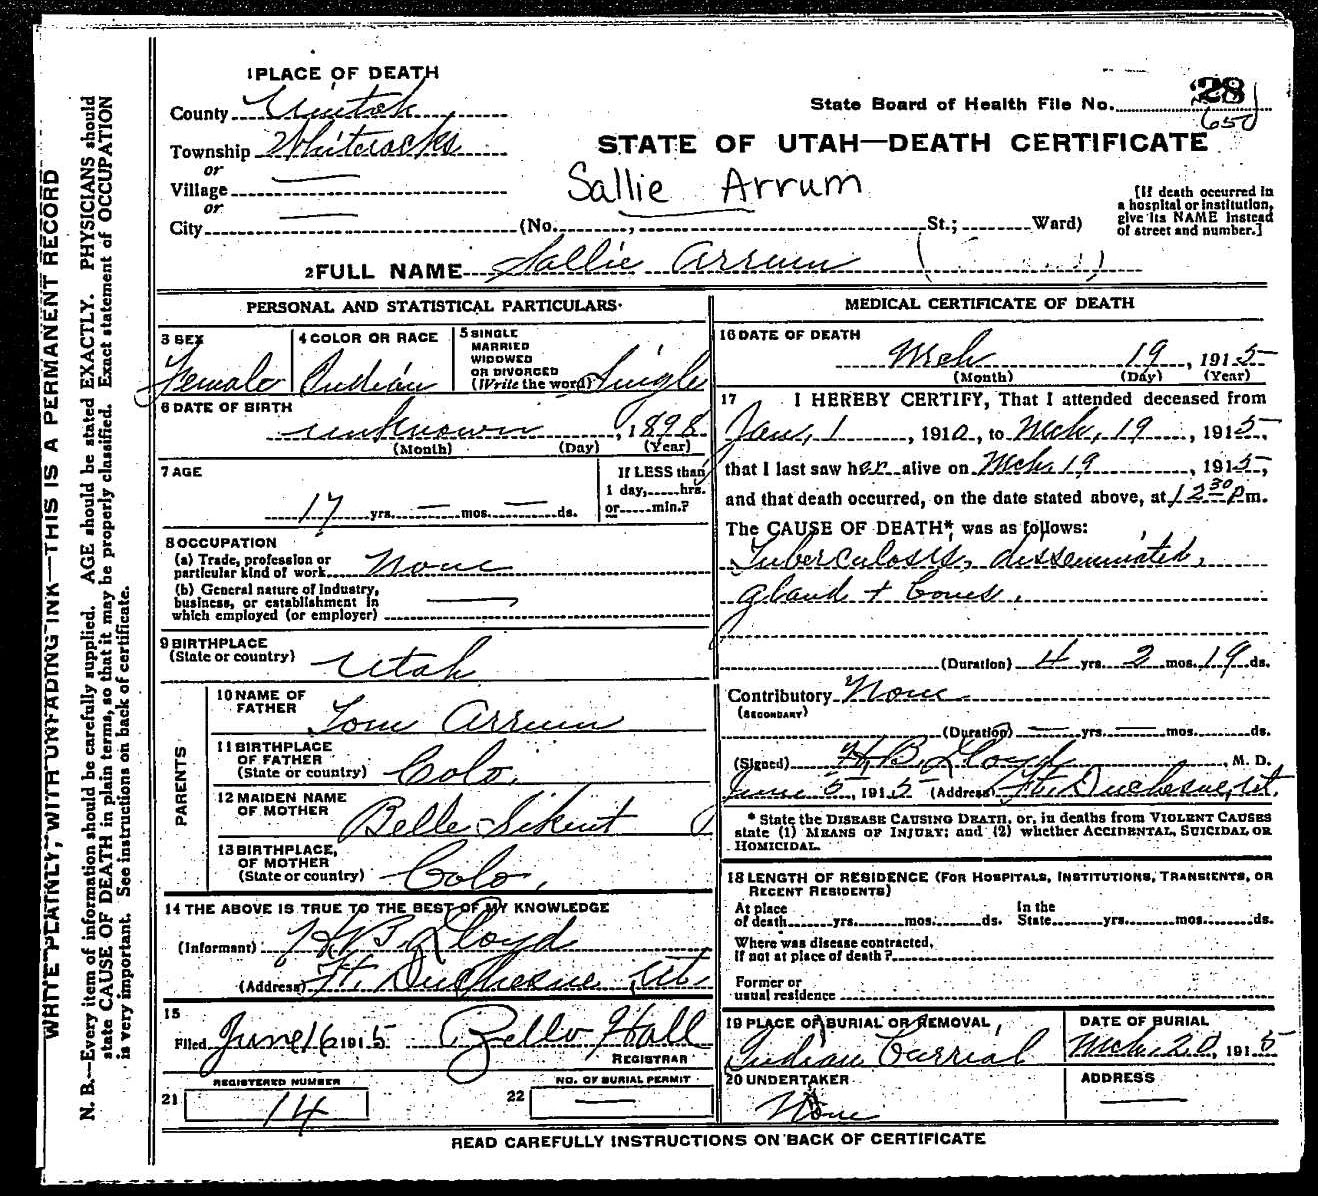 1 PLACE OF DEATH
County Uintah
Township Whiterocks
or
Village
or
City (No. , St.; Ward)
State Board of Health File No. 28
650
STATE OF UTAH—DEATH CERTIFICATE
Sallie Arrum
[If death occurred in
a hospital or institution,
give its NAME instead
of street and number.]
2 FULL NAME Sallie Arrum ( )
PERSONAL AND STATISTICAL PARTICULARS
3 SEX
Female
4 COLOR OR RACE
Indian
5 SINGLE
MARRIED
WIDOWED
OR DIVORCED
(Write the word) Single
6 DATE OF BIRTH
unknown, 1898
(Month) (Day) (Year)
7 AGE
17 yrs. — mos. — ds.
If LESS than
1 day, hrs.
or min.?
8 OCCUPATION
(a) Trade, profession or
particular kind of work None
(b) General nature of Industry,
business, or establishment in
which employed (or employer) —
9 BIRTHPLACE
(State or country) Utah
PARENTS
10 NAME OF
FATHER Tom Arrum
11 BIRTHPLACE
OF FATHER
(State or country) Colo.
12 MAIDEN NAME
OF MOTHER Belle Sikent
13 BIRTHPLACE,
OF MOTHER
(State or country) Colo.
14 THE ABOVE IS TRUE TO THE BEST OF MY KNOWLEDGE
(Informant) H.B. Lloyd
(Address) Ft. Duchesne, Ut.
15
Filed June 16 1915 Bello Hall
REGISTRAR
REGISTERED NUMBER
21 14
NO. OF BURIAL PERMIT
22 —
MEDICAL CERTIFICATE OF DEATH
16 DATE OF DEATH
Mch 19, 1915
(Month) (Day) (Year)
17 I HEREBY CERTIFY, That I attended deceased from
Jan, 1, 1910, to Mch, 19, 1915,
that I last saw her alive on Mch 19, 1915,
and that death occurred, on the date stated above, at 12 30 P m.
The CAUSE OF DEATH* was as follows:
Tuberculosis, disseminated,
gland + bones.
(Duration) 4 yrs. 2 mos. 19 ds.
Contributory None
(SECONDARY)
(Duration) — yrs. — mos. ds.
(Signed) H.B. Lloyd, M. D.
June 5, 1915 (Address) Ft. Duchesne, Ut.
* State the DISEASE CAUSING DEATH, or, in deaths from VIOLENT CAUSES
state (1) MEANS OF INJURY; and (2) whether ACCIDENTAL, SUICIDAL OR
HOMICIDAL.
18 LENGTH OF RESIDENCE (FOR HOSPITALS, INSTITUTIONS, TRANSIENTS, OR
RECENT RESIDENTS)
At place In the
of death yrs. mos. ds. State yrs. mos. ds.
Where was disease contracted,
if not at place of death?
Former or
usual residence
19 PLACE OF BURIAL OR REMOVAL,
Indian Burrial
DATE OF BURIAL
Mch. 20, 1915
20 UNDERTAKER
None
ADDRESS
—
READ CAREFULLY INSTRUCTIONS ON BACK OF CERTIFICATE
WRITE PLAINLY, WITH UNFADING INK—THIS IS A PERMANENT RECORD
N. B.—Every item of information should be carefully supplied. AGE should be stated EXACTLY. PHYSICIANS should
state CAUSE OF DEATH in plain terms, so that it may be properly classified. Exact statement of OCCUPATION
is very important. See instructions on back of certificate.